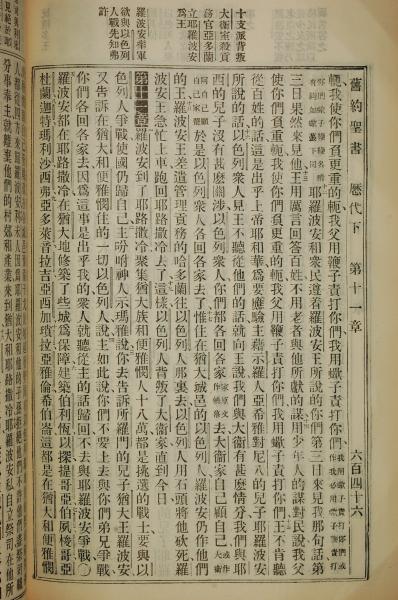 舊約聖書 歷代下 第十一章 六百四十六
十支派背叛
大衛室殺貢
務官亞多蘭
立耶羅波安
爲王
羅波安舉軍
欲與以色列
人戰先知弗
許
軛我使你們負更重的軛我父用鞭子責打你們我用蠍子責打你們
耶羅波安和衆民遵着羅波安王所說的你們第三日來見我那句話第
三日果然來見他王用厲言回答百姓不用老者與他所獻的謀用少年人的謀對民說我父
使你們負重軛我使你們負更重的軛我父用鞭子責打你們我用蠍子責打你們王不肯聽
從百姓的話這是出乎上帝耶和華爲要應驗主藉示羅人亞希雅對尼八的兒子耶羅波安
所說的話以色列衆人見王不聽從他們的話就向王說我們與大衛有甚麼情分我們與耶
西的兒子沒有甚麼關涉以色列衆人你們都各回各家去大衛家自己顧自己
於是以色列衆人各回各家去了惟住在猶大城邑的以色列人羅波安仍作他們
的王羅波安王差遣管理貢務的哈多蘭往以色列人那裏去以色列人用石頭將他砍死羅
波安王急忙上車跑回耶路撒冷去了這樣以色列人背叛了大衛家直到今日
第十一章羅波安到了耶路撒冷聚集猶大族和便雅憫人十八萬都是挑選的戰士要與以
色列人爭戰使國仍歸自己主吩咐神人示瑪雅說你去告訴所羅門的兒子猶大王羅波安
又告訴在猶大和便雅憫住的一切以色列人說主如此說你們不要上去與你們弟兄爭戰
你們各回各家去因爲這事是出乎我的衆人就聽從主的話歸回不去與耶羅波安爭戰〇
羅波安住在耶路撒冷在猶大地修築了些城爲保障建築伯利恆以探提哥亞伯夙梭哥亞
杜蘭迦特瑪利沙西弗亞多萊音拉吉亞西加瑣拉亞雅倫希伯崙這都是在猶大和便雅憫